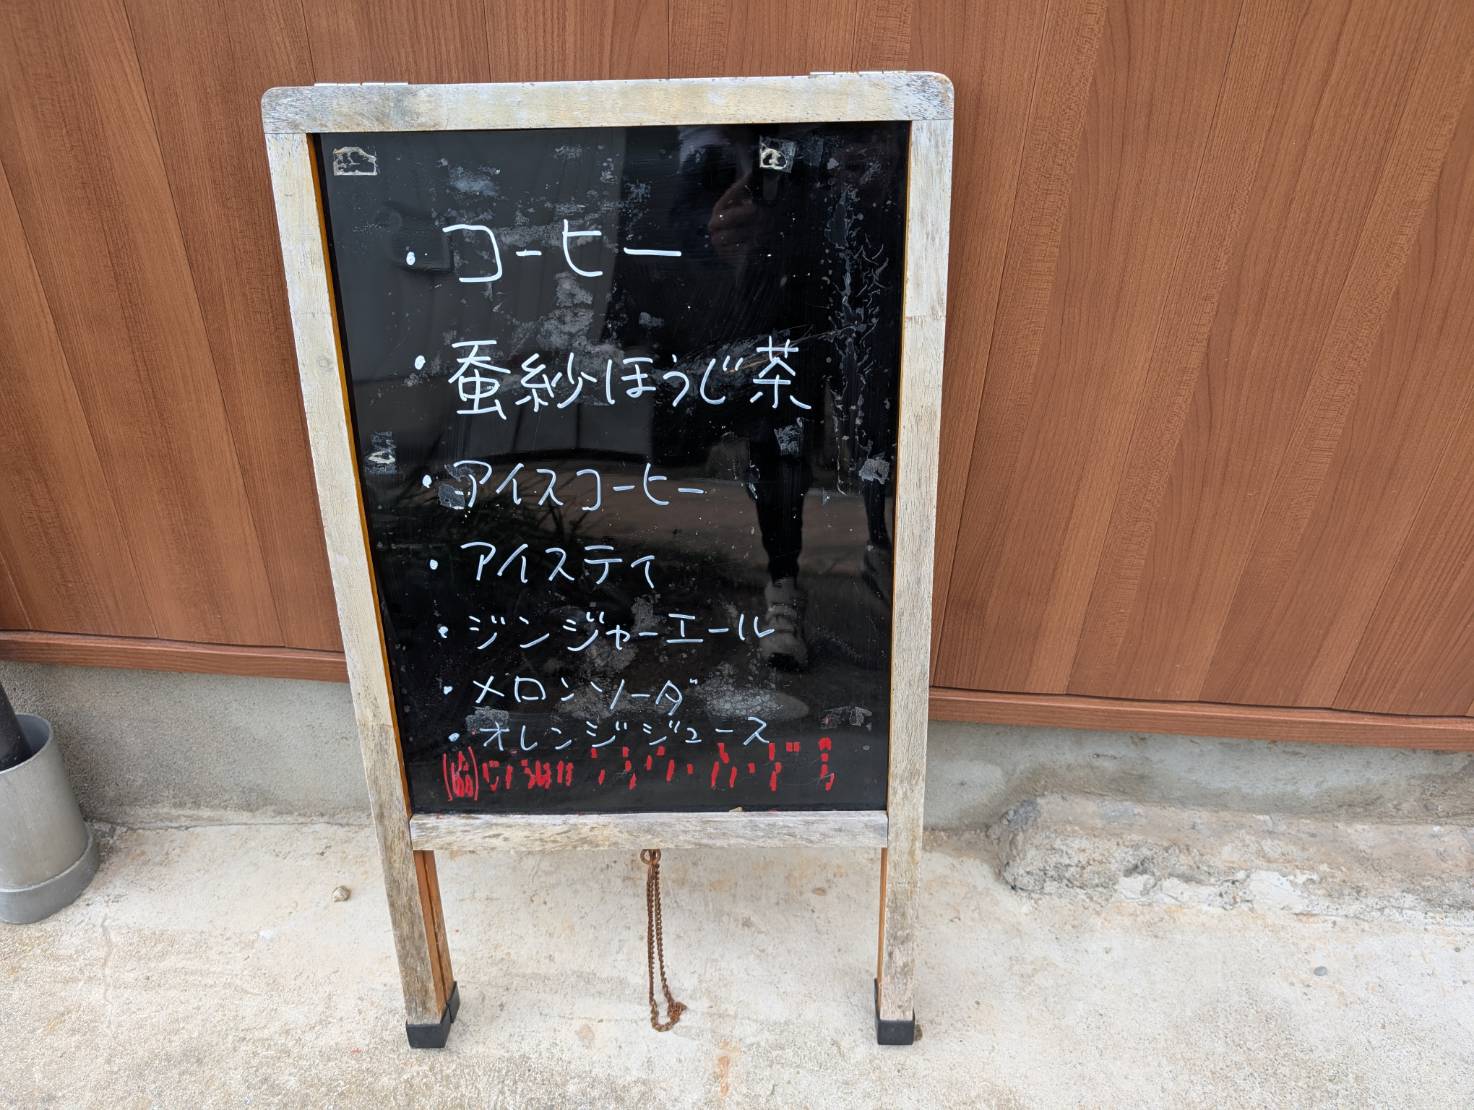 ・コーヒー
・蚕紗ほうじ茶
・アイスコーヒー
・アイスティ
・ジンジャーエール
・メロンソーダ
・オレンジジュース